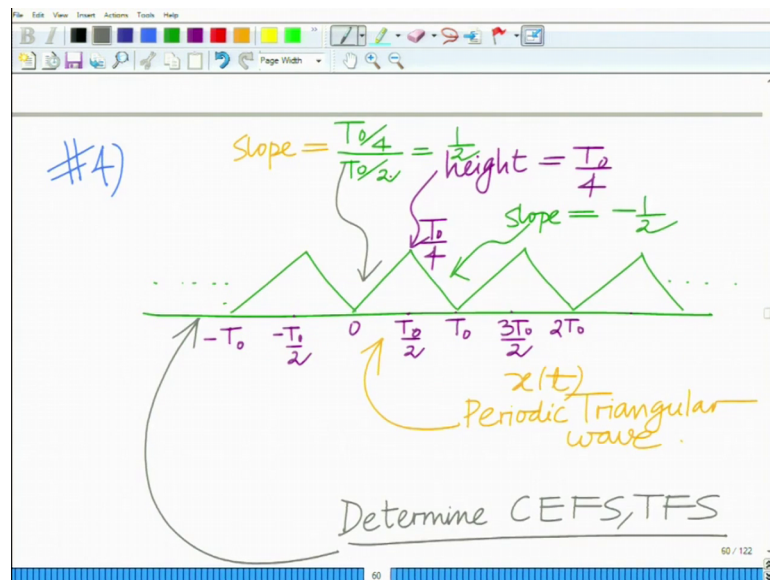 File Edit View Insert Actions Tools Help
B I
Page Width
#4)
slope = T₀/4 / T₀/2 = 1/2
height = T₀/4
T₀/4
slope = -1/2
-T₀ -T₀/2 0 T₀/2 T₀ 3T₀/2 2T₀
x(t)
Periodic Triangular
wave.
Determine CEFS, TFS
60 / 122
60